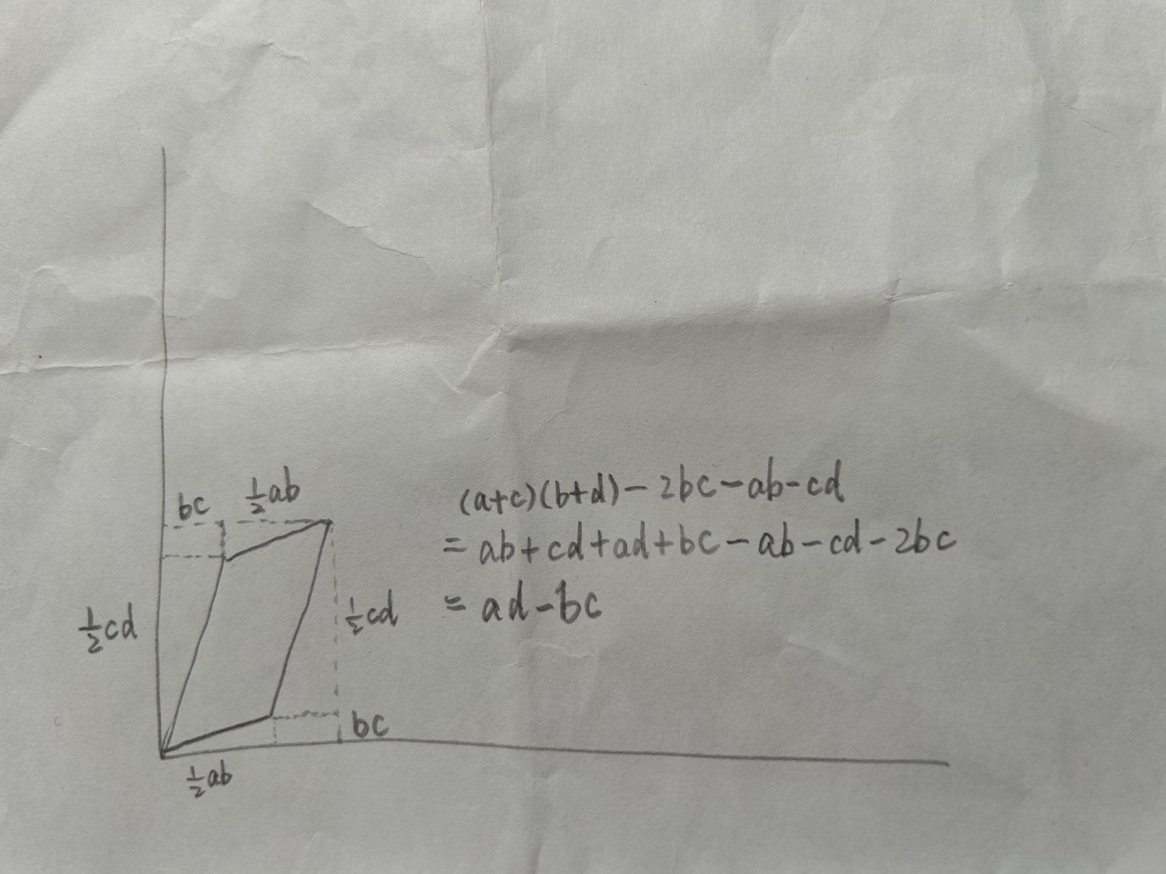 bc
½ab
½cd
½cd
bc
½ab
(a+c)(b+d)-2bc-ab-cd
=ab+cd+ad+bc-ab-cd-2bc
=ad-bc